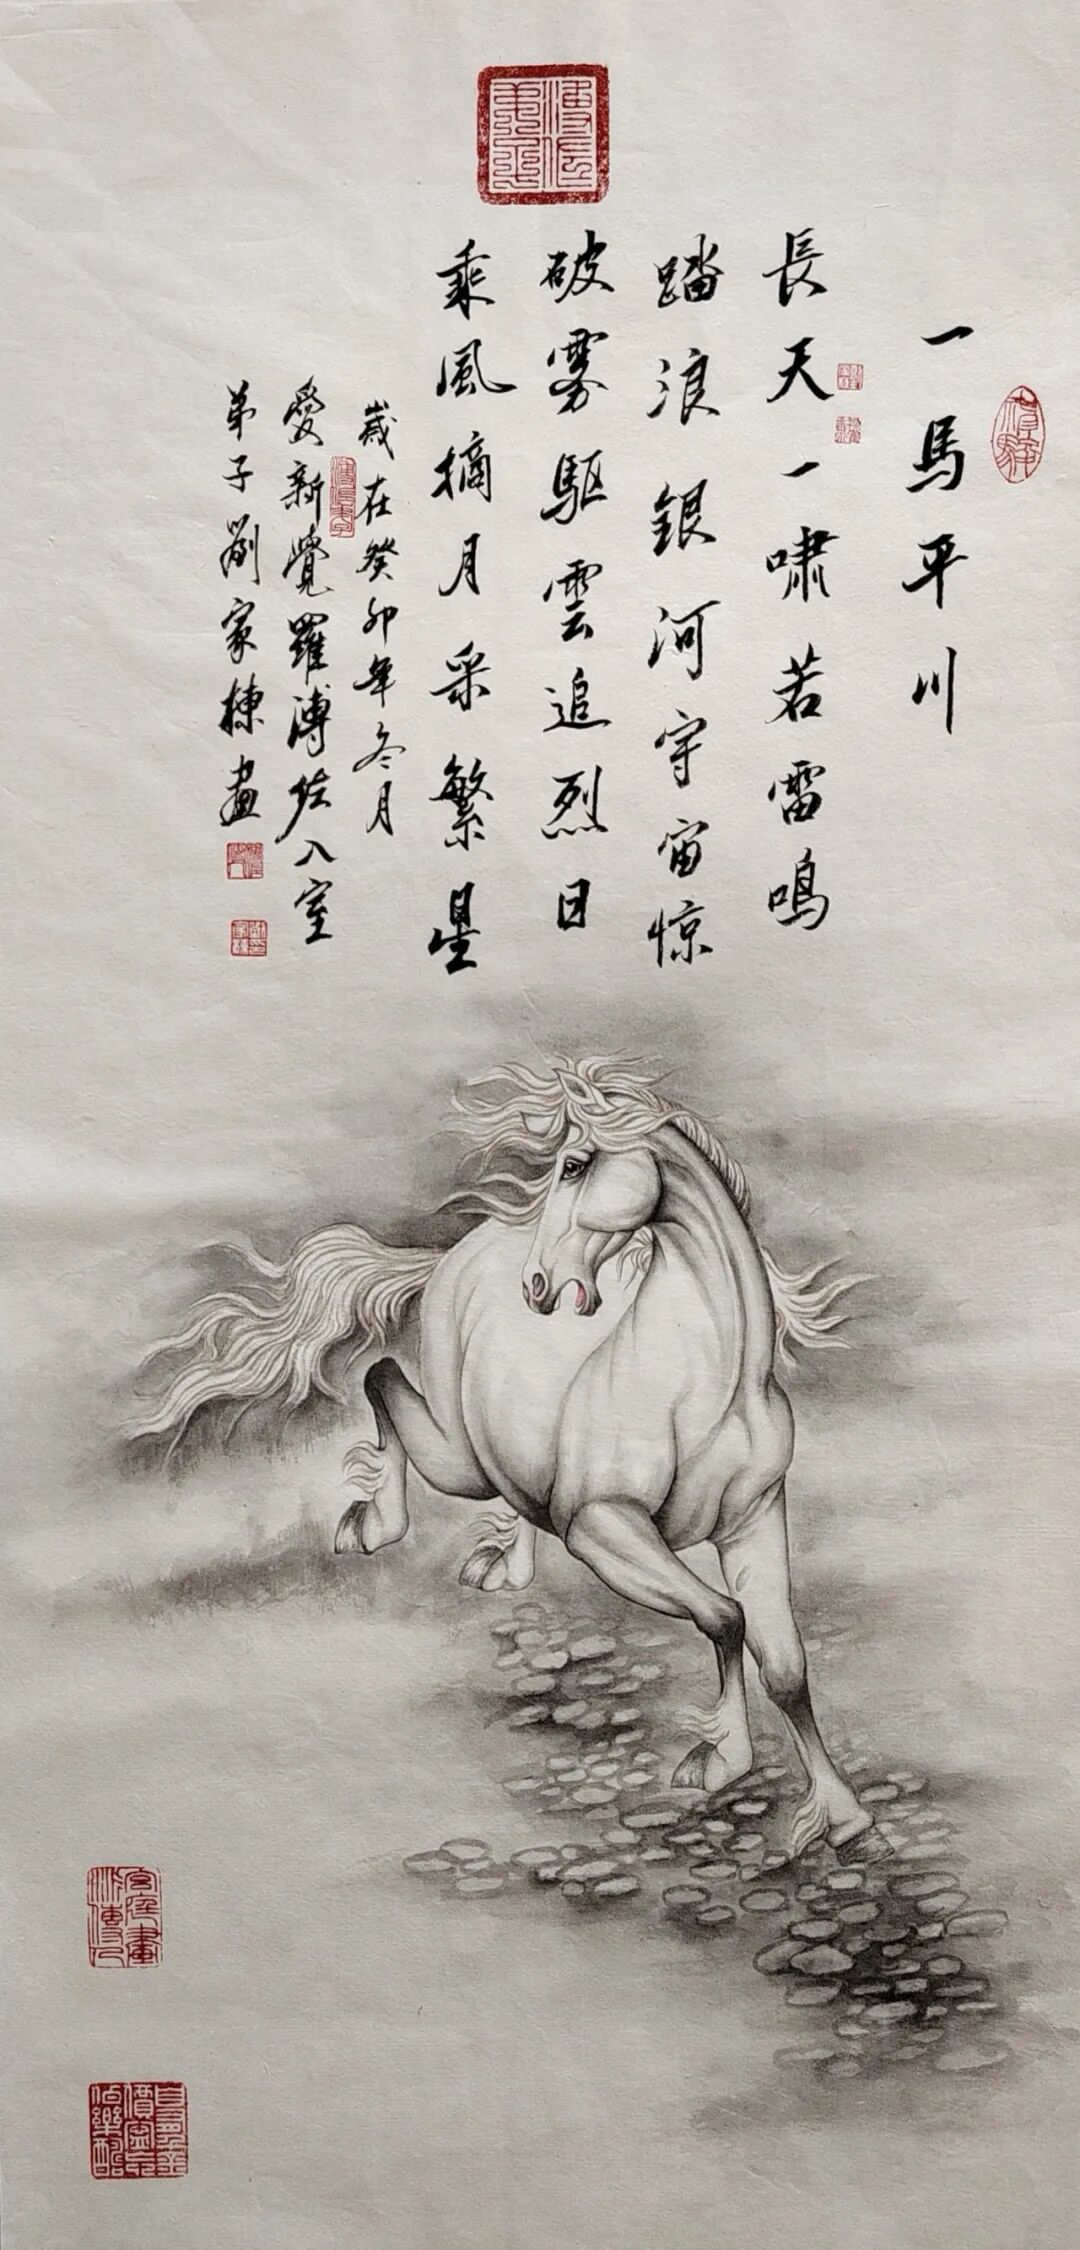 一馬平川
長天一啸若雷鳴
踏浪銀河宇宙惊
破雾駆雲追烈日
乘風摘月采繁星
歲在癸卯年冬月
愛新覺羅溥佐入室
弟子劉家棟畫
宮廷畫派傳人